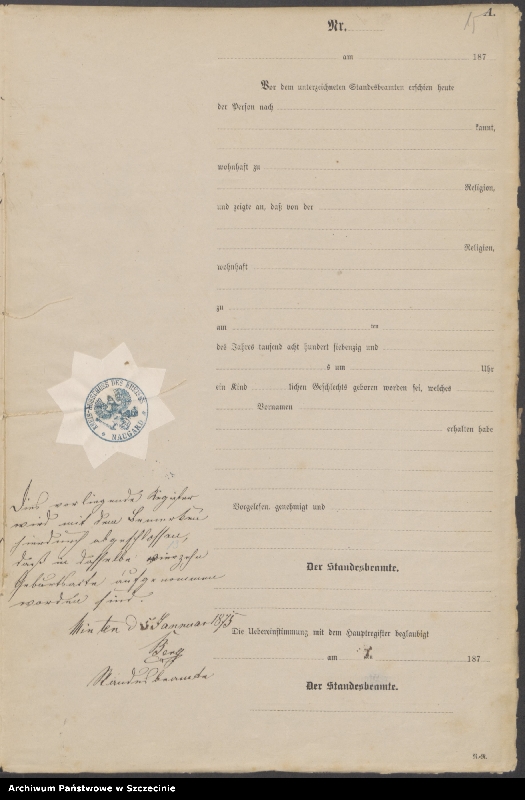 15
A.
Nr.
am 187
Vor dem unterzeichneten Standesbeamten erschien heute
der Person nach
kannt,
wohnhaft zu
Religion,
und zeigte an, daß von der
Religion,
wohnhaft
zu
am ten
des Jahres tausend acht hundert siebenzig und
s um Uhr
ein Kind lichen Geschlechts geboren worden sei, welches
Vornamen
erhalten habe
Vorgelesen, genehmigt und
Der Standesbeamte.
Die Uebereinstimmung mit dem Hauptregister beglaubigt
am 187
Der Standesbeamte.
KREIS-AUSSCHUSS DES KREISES
* NAUGARD *
Dies vorliegende Register
wird mit dem Bemerken
hierdurch abgeschlossen,
daß in dasselbe vierzehn
Geburtsacte aufgenommen
worden sind.
Minten d Januar 1875
Berg
Standesbeamte
Archiwum Państwowe w Szczecinie